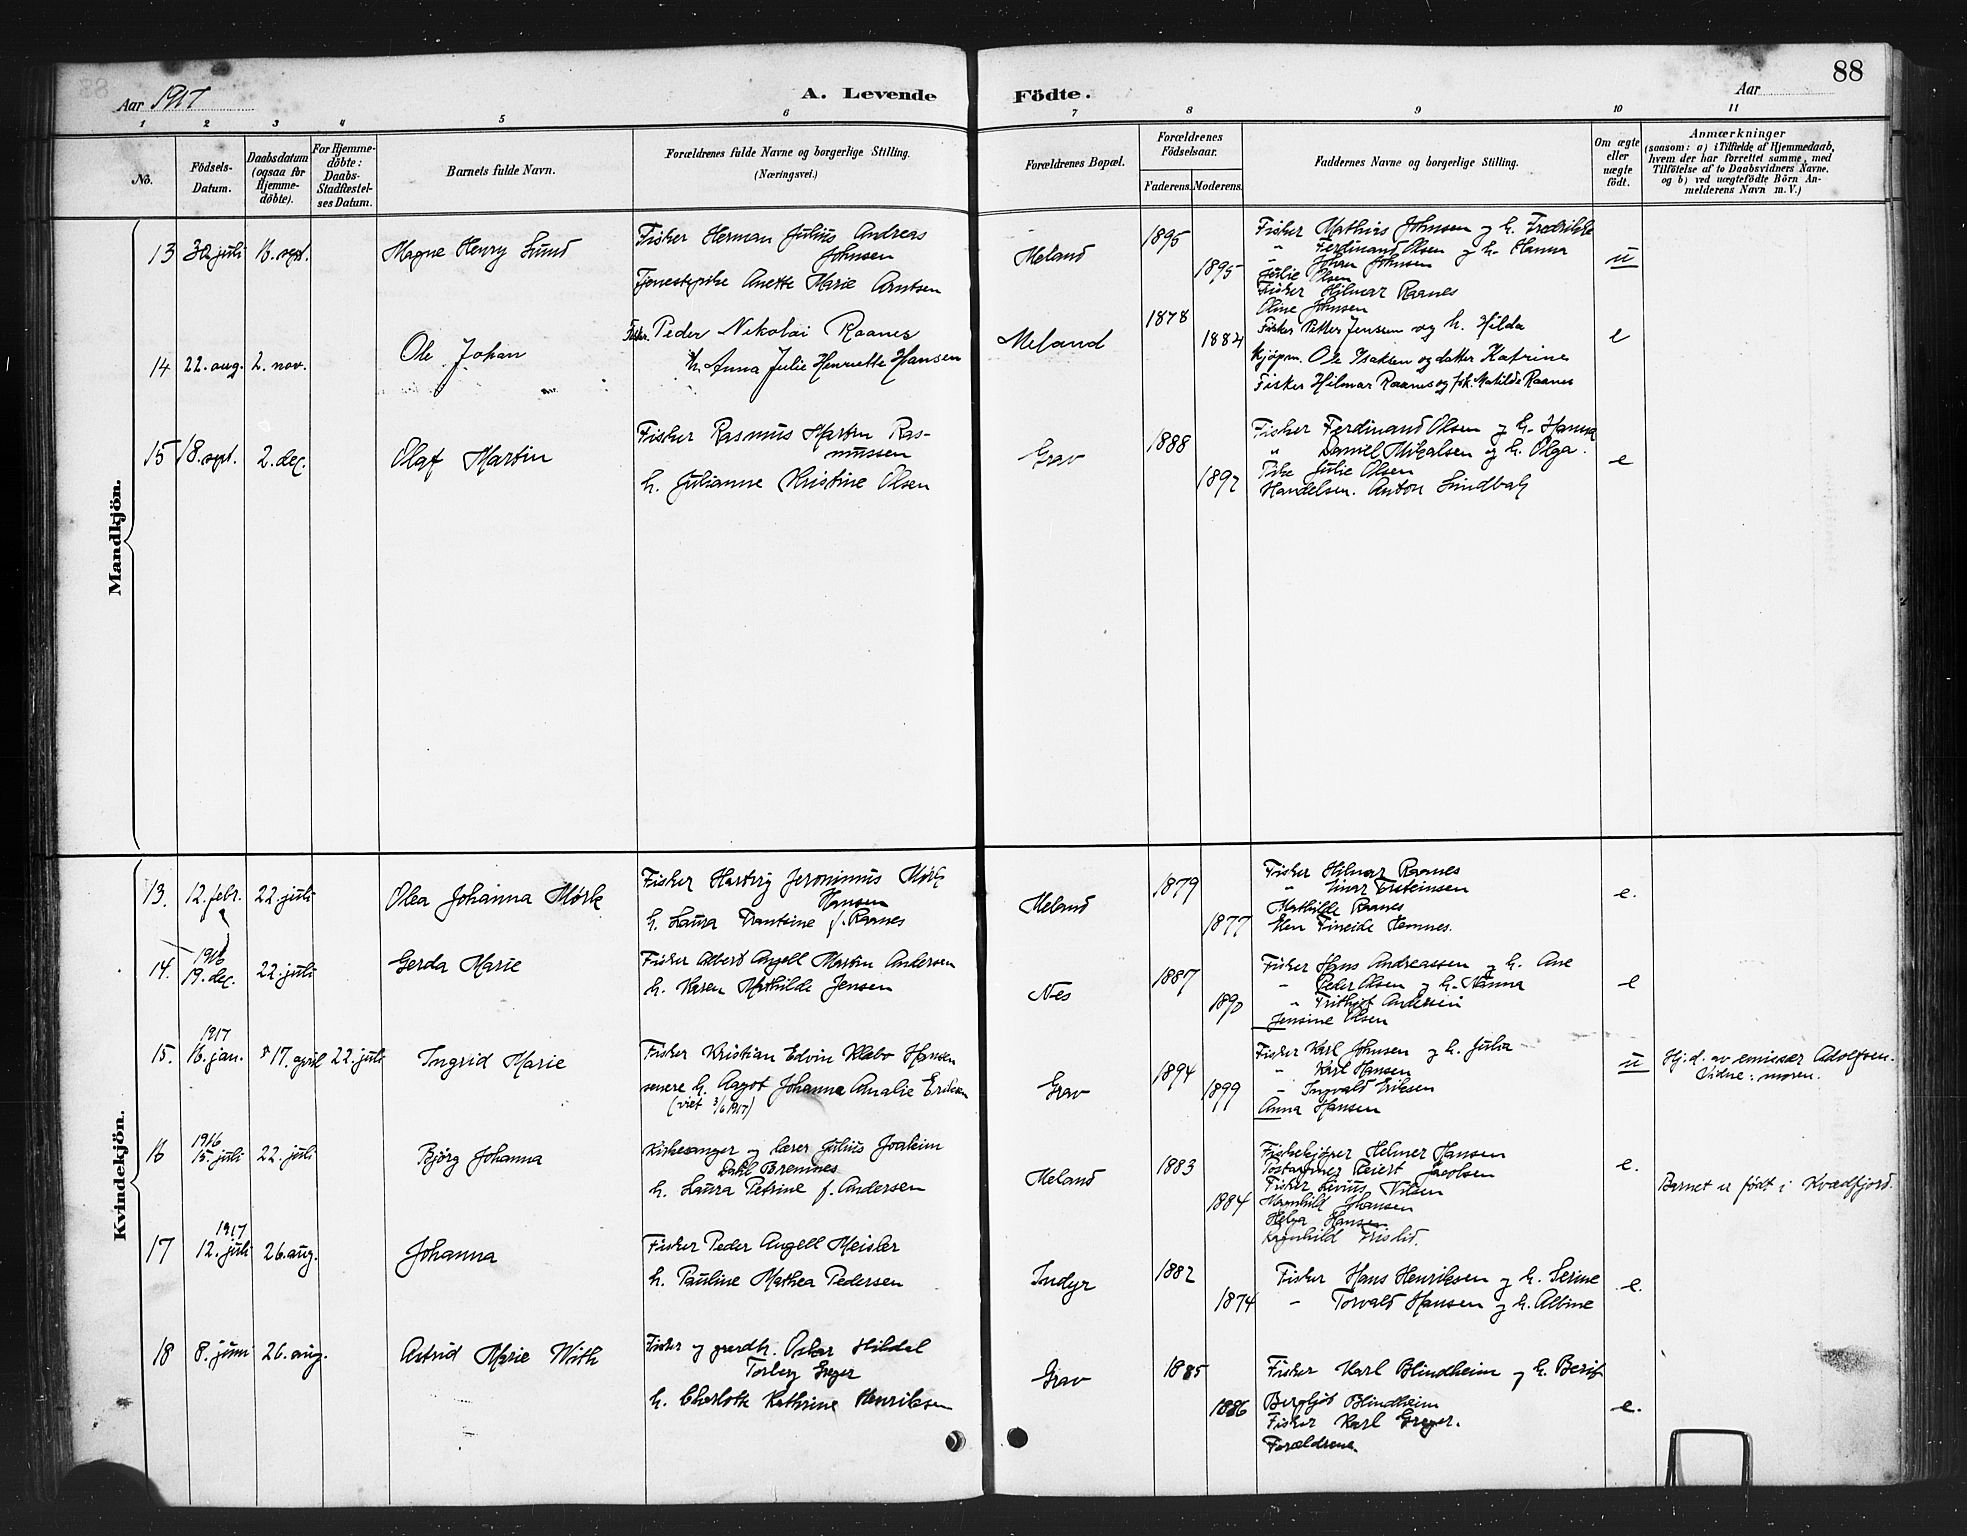 88
Aar 1917
A. Levende Födte.
Aar
1 2 3 4 5 6 7 8 9 10 11
No.
Födsels-Datum.
Daabsdatum (ogsaa for Hjemme-döbte).
For Hjemme-döbte: Daabs-Stadfæstel-ses Datum.
Barnets fulde Navn.
Forældrenes fulde Navne og borgerlige Stilling.
(Næringsvei.)
Forældrenes Bopæl.
Forældrenes Födselsaar.
Faderens. Moderens.
Faddernes Navne og borgerlige Stilling.
Om ægte eller uægte födt.
Anmærkninger
(saasom: a) i Tilfælde af Hjemmedaab,
hvem der har forrettet samme, med
Tilföielse af to Daabsvidners Navne.
og b) ved uægtefödte Börn An-
melderens Navn m. V.)
Mandkjön.
13 30 juli 16. sept. Magne Henry Lund
Fisker Herman Julius Andreas
Johnsen
Tjenestepike Anette Marie Arntsen
Meland 1895 1895
Fisker Mathias Johnsen og h. Fredrikke
" Ferdinand Olsen og h. Hanna
" Johan Johnsen
Julie Olsen
Fisker Hilmar Raanes
Oline Johnsen
u
14 22. aug. 2. nov. Ole Johan
Fisker Peder Nikolai Raanes
h. Anna Julie Henriette Hansen
Meland 1878 1882
Fisker Petter Jensen og h. Hilda
Kjøpm. Ole Isaksen og datter Katrine
Fisker Hilmar Raanes og frk. Matilde Raanes
e
15 18. sept. 2. dec. Olaf Martin
Fisker Rasmus Martin Ras-
mussen
h. Julianne Kristine Olsen
Grav 1888 1892
Fisker Ferdinand Olsen og h. Hanna
" Daniel Mikalsen og h. Olga.
Pike Julie Olsen
Handelsm. Anton Lundbak
e
Kvindekjön.
13. 12. febr. 22. juli Olea Johanna Mørk
Fisker Hartvig Jeronimus Mørk
Hansen
h. Laura Trantsine f. Raanes
Meland 1879 1877
Fisker Hilmar Raanes
" Einar Torsteinsen
Mathilde Raanes
Ellen Fineide Hemnes.
e.
14. 1916 19. dec. 22. juli Gerda Marie
Fisker Albert Angell Martin Andersen
h. Karen Mathilde Jensen
Nes 1887 1890
Fisker Hans Andreassen og h. Ane
" Peder Olsen og h. Nanna
" Frithjof Andersen
Jensine Olsen
e
15. 1917 16. jan. 17. april 22. juli Ingrid Marie
Fisker Kristian Edvin Klæbo Hansen
senere h. Aagot Johanna Amalie Eriksen
(viet 3/6 1917)
Grav 1894 1899
Fisker Karl Johnsen og h. Julia
" Karl Hansen
" Ingvald Eriksen
Anna Hansen
u
Hj.d. av emissær Adolfsen.
Vidne: moren.
16 1916 15. juli 22. juli Bjørg Johanna
Kirkesanger og lærer Julius Joakim
Dahl Bremnes
h. Laura Petrine f. Andersen
Meland 1883 1884
Fiskekjøper Helmer Hansen
Postaapner Peiert Jacobsen
Fisker Livius Nilsen
Magnhild Johansen
Helga Hansen
Ragnhild Trislid.
e.
Barnet er født i Kvædfjord.
17 1917 12. juli 26. aug. Johanna
Fisker Peder Angell Meisler
h. Pauline Mathea Pedersen
Indyr 1882 1874
Fisker Hans Henriksen og h. Serine
" Torvald Hansen og h. Albine
e.
18 8. juni 26. aug. Astrid Marie With
Fisker og gaardbr. Oskar Hildal
Torberg Greger
h. Charlotte Kathrine Henriksen
Grav 1885 1886
Fisker Karl Blindheim og h. Berit
Bergljot Blindheim
Fisker Karl Greger.
Forældrene.
e.